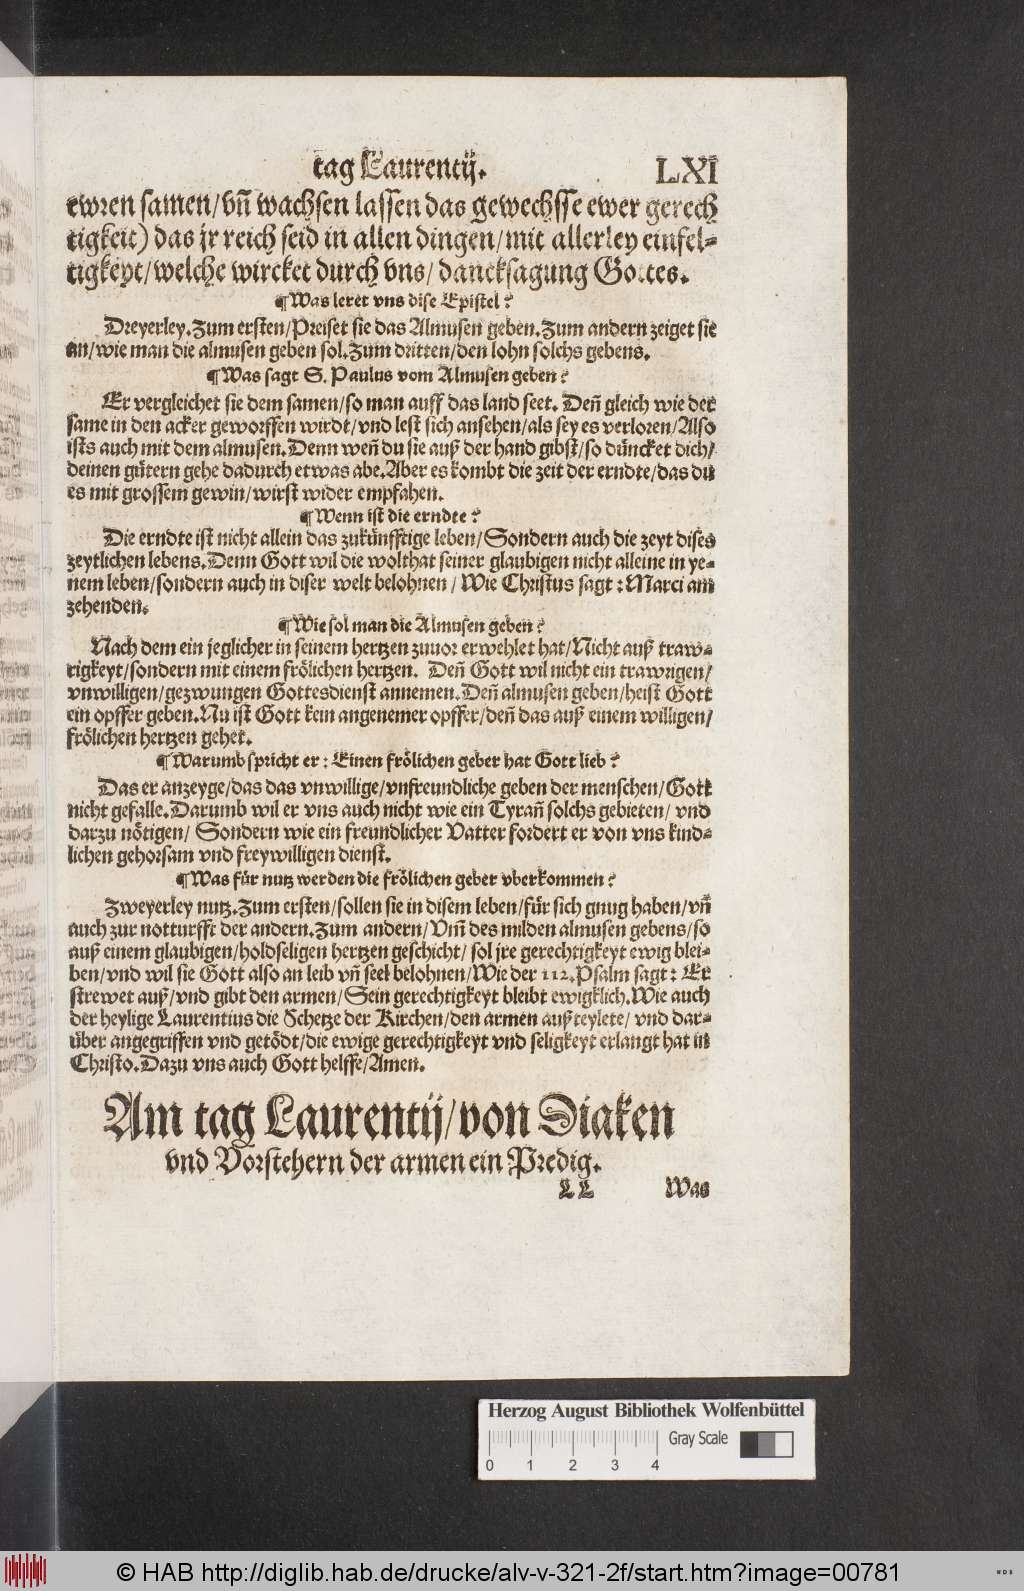 tag Laurentij. LXI
ewren samen/vñ wachsen lassen das gewechsse ewer gerech
tigkeit) das jr reich seid in allen dingen/mit allerley einfel-
tigkeyt/welche wircket durch vns/dancksagung Gottes.
¶Was leret vns dise Epistel?
Dreyerley.Zum ersten/Preiset sie das Almusen geben.Zum andern zeiget sie
an/wie man die almusen geben sol.Zum dritten/den lohn solchs gebens.
¶Was sagt S. Paulus vom Almusen geben?
Er vergleichet sie dem samen/so man auff das land seet. Deñ gleich wie der
same in den acker geworffen wirdt/vnd lest sich ansehen/als sey es verloren/Also
ists auch mit dem almusen.Denn weñ du sie auß der hand gibst/so důncket dich/
deinen gůtern gehe dadurch etwas abe.Aber es kombt die zeit der erndte/das du
es mit grossem gewin/wirst wider empfahen.
¶Wenn ist die erndte?
Die erndte ist nicht allein das zukůnfftige leben/Sondern auch die zeyt dises
zeytlichen lebens.Denn Gott wil die wolthat seiner glaubigen nicht alleine in ye-
nem leben/sondern auch in diser welt belohnen/Wie Christus sagt:Marci am
zehenden.
¶Wie sol man die Almusen geben?
Nach dem ein jeglicher in seinem hertzen zuuor erwehlet hat/Nicht auß traw-
rigkeyt/sondern mit einem frőlichen hertzen. Deñ Gott wil nicht ein trawrigen/
vnwilligen/gezwungen Gottesdienst annemen.Deñ almusen geben/heist Gott
ein opffer geben.Nu ist Gott kein angenemer opffer/deñ das auß einem willigen/
frőlichen hertzen gehet.
¶Warumb spricht er: Einen frőlichen geber hat Gott lieb?
Das er anzeyge/das das vnwillige/vnfreundliche geben der menschen/Gott
nicht gefalle.Darumb wil er vns auch nicht wie ein Tyrañ solchs gebieten/vnd
darzu nőtigen/ Sondern wie ein freundlicher Vatter fordert er von vns kind-
lichen gehorsam vnd freywilligen dienst.
¶Was für nutz werden die frőlichen geber vberkommen?
Zweyerley nutz.Zum ersten/sollen sie in disem leben/für sich gnug haben/vñ
auch zur notturfft der andern.Zum andern/Vm̃ des milden almusen gebens/so
auß einem glaubigen/holdseligen hertzen geschicht/ sol jre gerechtigkeyt ewig blei-
ben/vnd wil sie Gott also an leib vñ seel belohnen/Wie der 112.Psalm sagt: Er
strewet auß/vnd gibt den armen/Sein gerechtigkeyt bleibt ewigklich.Wie auch
der heylige Laurentius die Schetze der Kirchen/den armen außteylete/ vnd dar-
über angegriffen vnd getődt/die ewige gerechtigkeyt vnd seligkeyt erlangt hat in
Christo.Dazu vns auch Gott helffe/Amen.
Am tag Laurentij/von Diaken
vnd Vorstehern der armen ein Predig.
LL Was
Herzog August Bibliothek Wolfenbüttel
Gray Scale
0 1 2 3 4
© HAB http://diglib.hab.de/drucke/alv-v-321-2f/start.htm?image=00781